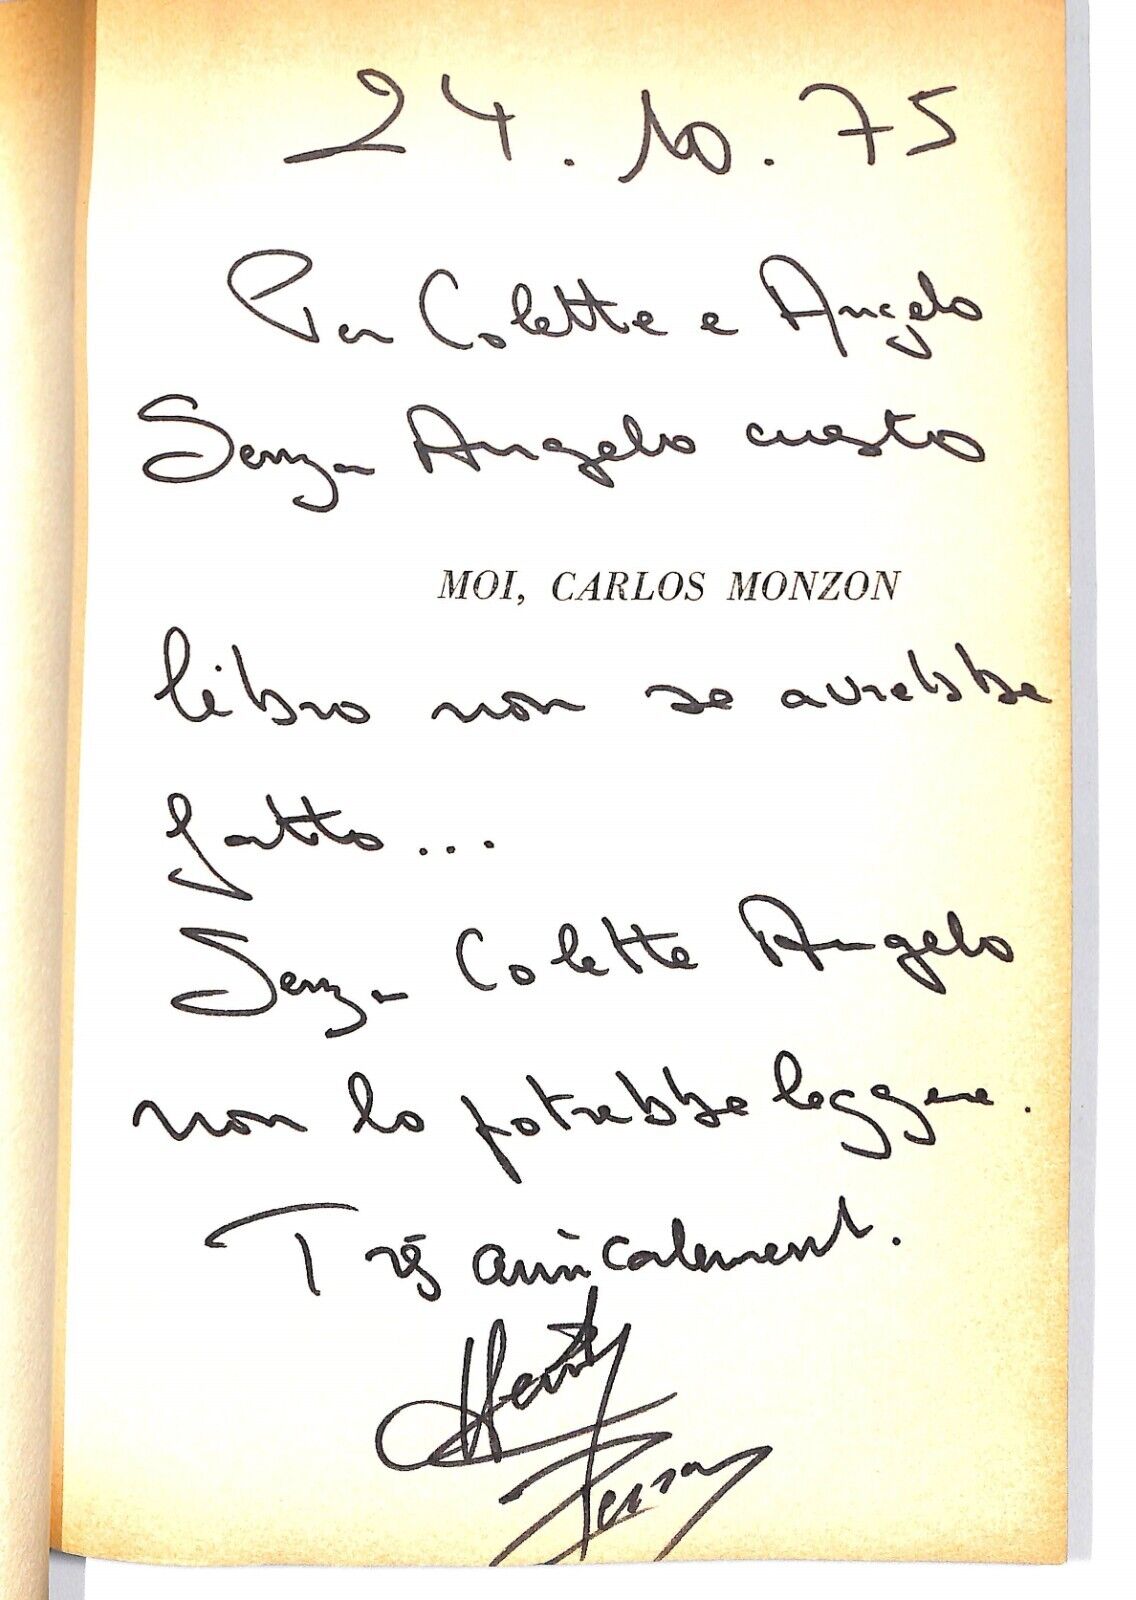 24.10.75
Per Colette e Angelo
Senza Angelo cuesto
MOI, CARLOS MONZON
libro non se avrebbe
fatto...
Senza Colette Angelo
non lo potrebbe leggere.
Très amicalement.